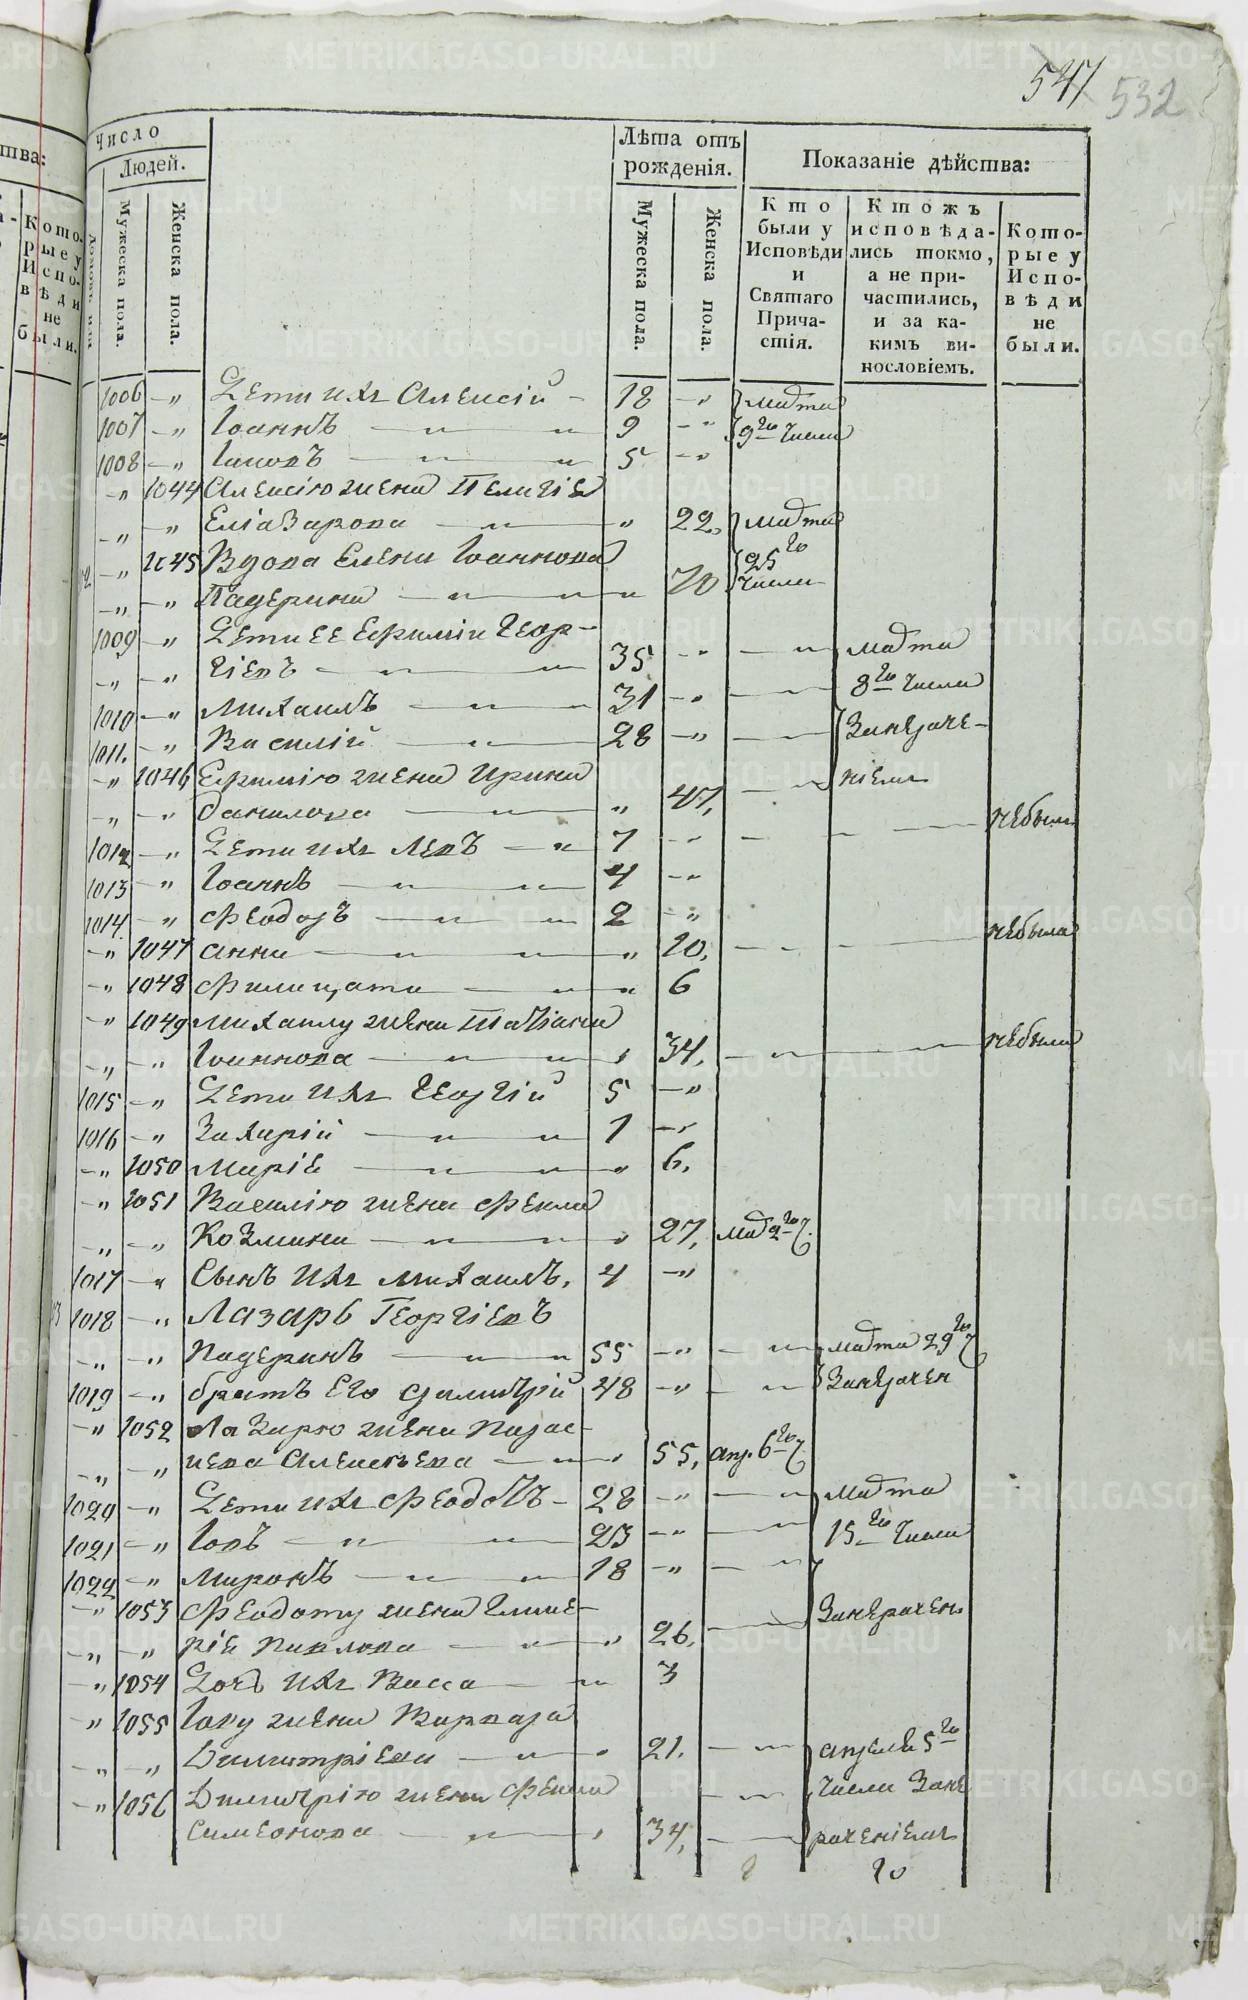 547 532
Число
Людей.
Мужеска пола.
Женска пола.
Лѣта отъ рожденія.
Мужеска пола.
Женска пола.
Показаніе дѣйства:
Кто были у Исповѣди и Святаго Причастія.
Ктожъ исповѣдались токмо, а не причастились, и за какимъ винословіемъ.
Которые у Исповѣди не были.
1006 — „ Дети ихъ Алексій — 18 — „ марта
1007 — „ Іоаннъ — „ — „ 9 — „ 9го числа
1008 — „ Іаковъ — „ — „ 5 — „
— „ 1044 Алексію жена Пелагіа
— „ — „ Еліазарова — „ — „ 22. марта
— „ 1045 Вдова Елена Іоаннова 25го
— „ — „ Падерина — „ — „ 70 числа
1009 — „ Дети ее Ефимій Геор-
— „ — „ гіевъ — „ — „ 35 — „ — „ марта
1010 — „ Михаилъ — „ — „ 31 — „ — „ 8го числа
1011. — „ Василій — „ — „ 28 — „ — „ Занераче-
— „ 1046 Ефимію жена Ирина ніемъ
— „ — „ Данилова — „ 47. — „ небыла
1012 — „ Дети ихъ Левъ — „ 7 — „
1013 — „ Іоаннъ — „ — „ 4 — „
1014. — „ Феодоръ — „ — „ 2 — „
— „ 1047 Анна — „ — „ 10. — небыла
— „ 1048 Филицата — „ — „ 6
— „ 1049 Михаилу жена Татіана
— „ — „ Іоаннова — „ — „ 34. — „ — небыла
1015 — „ Дети ихъ Георгій 5 — „
1016 — „ Захарій — „ — „ 1 — „
— „ 1050 Маріа — „ — „ 6.
— „ 1051 Василію жена Фекла
— „ — „ Козмина — „ — „ 27. мар 2го ч.
1017 — „ Сынъ ихъ Михаилъ. 4 — „
1018 — „ Лазарь Георгіевъ
— „ — „ Падеринъ — „ — „ 55 — „ — „ марта 29го ч
1019 — „ братъ Его Димитрій 48 — „ — „ Занерачен
— „ 1052 Лазарю жена Парас-
— „ — „ кева Алексѣева — „ 55, апр. 6го ч.
1020 — „ Дети ихъ Феодотъ — 28 — „ — „ марта
1021 — „ Іовъ — „ — „ 23 — „ — „ 15го числа
1022 — „ Миронъ — „ — „ 18 — „ — „
— „ 1053 Феодоту жена Глике- Занерачен
— „ — „ ріа Павлова — „ — „ 26. —
— „ 1054 Дочь ихъ Васса — „ 3
— „ 1055 Іову жена Варвара
— „ — „ Димитріева — „ — „ 21. — „ апреля 5го
— „ 1056 Димитрію жена Фекла — „ числа Зане
Симеонова — „ — „ 34, — раченіемъ
2 20